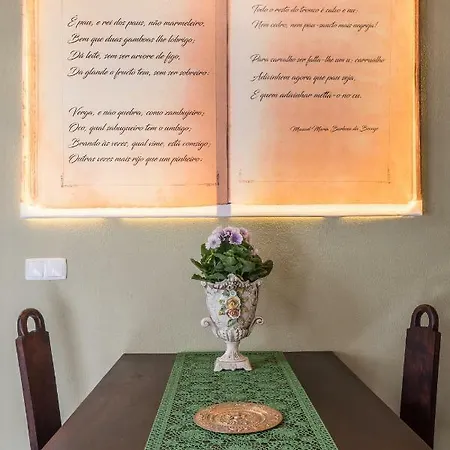 É pau, e rei dos paus, não marmeleiro,
Bem que duas gamboas lhe lobrigo;
Dá leite, sem ser arvore de figo,
Da glande o fructo tem, sem ser sobreiro:
Verga, e não quebra, como zambujeiro;
Oco, qual sabugueiro tem o umbigo;
Brando às vezes, qual vime, está comsigo;
Outras vezes mais rijo que um pinheiro:
Todo o resto do tronco é calvo e nu;
Nem cedro, nem pau-sancto mais negreja!
Para carvalho ser falta-lhe um u;
Adivinhem agora que pau seja,
E quem adivinhar metta-o no cu.
Manuel Maria Barbosa du Bocage